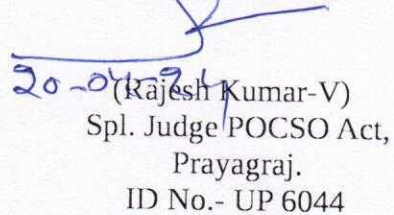 20-04-24
(Rajesh Kumar-V)
Spl. Judge POCSO Act,
Prayagraj.
ID No.- UP 6044